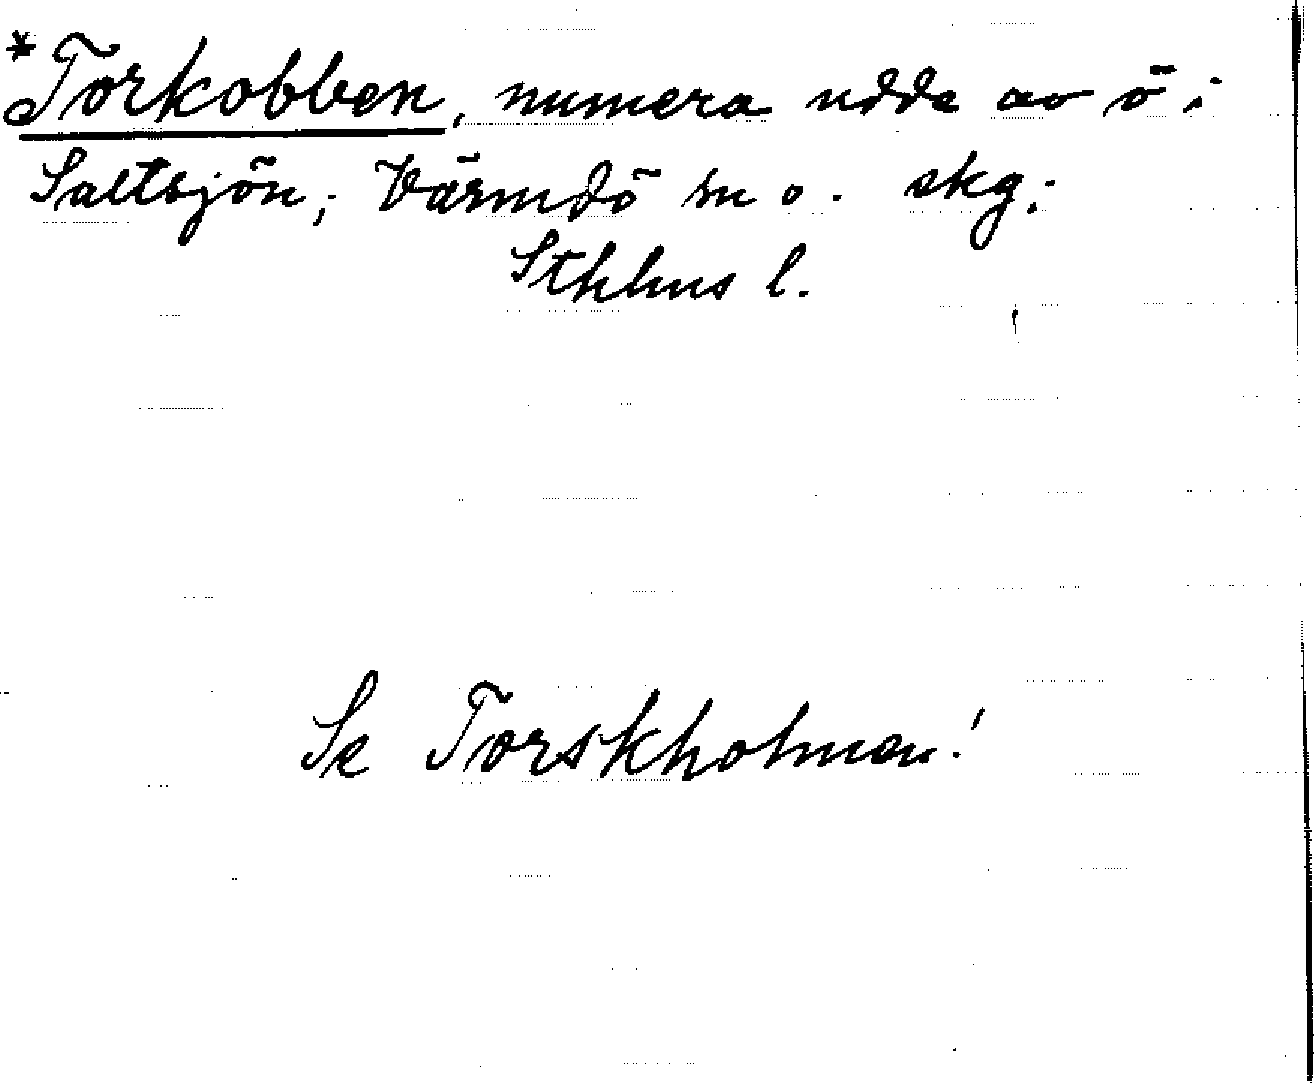 *Torkobben, numera udde av ö i
Saltsjön; Värmdö sn o. skg;
Sthlms l.
Se Torskholmen!